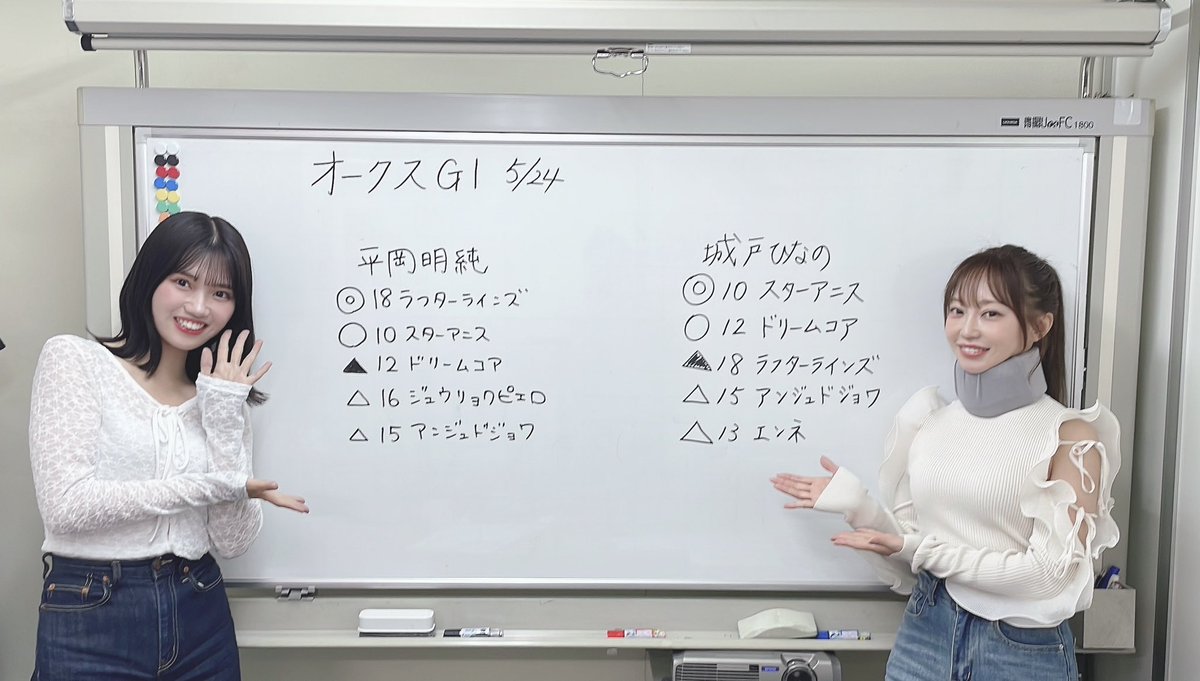 オークス GI 5/24
平岡明純
◎ 18 ラフターラインズ
○ 10 スターアニス
▲ 12 ドリームコア
△ 16 ジュウリョクピエロ
△ 15 アンジュドジョワ
城戸ひなの
◎ 10 スターアニス
○ 12 ドリームコア
▲ 18 ラフターラインズ
△ 15 アンジュドジョワ
△ 13 エンネ
1800
EPSON